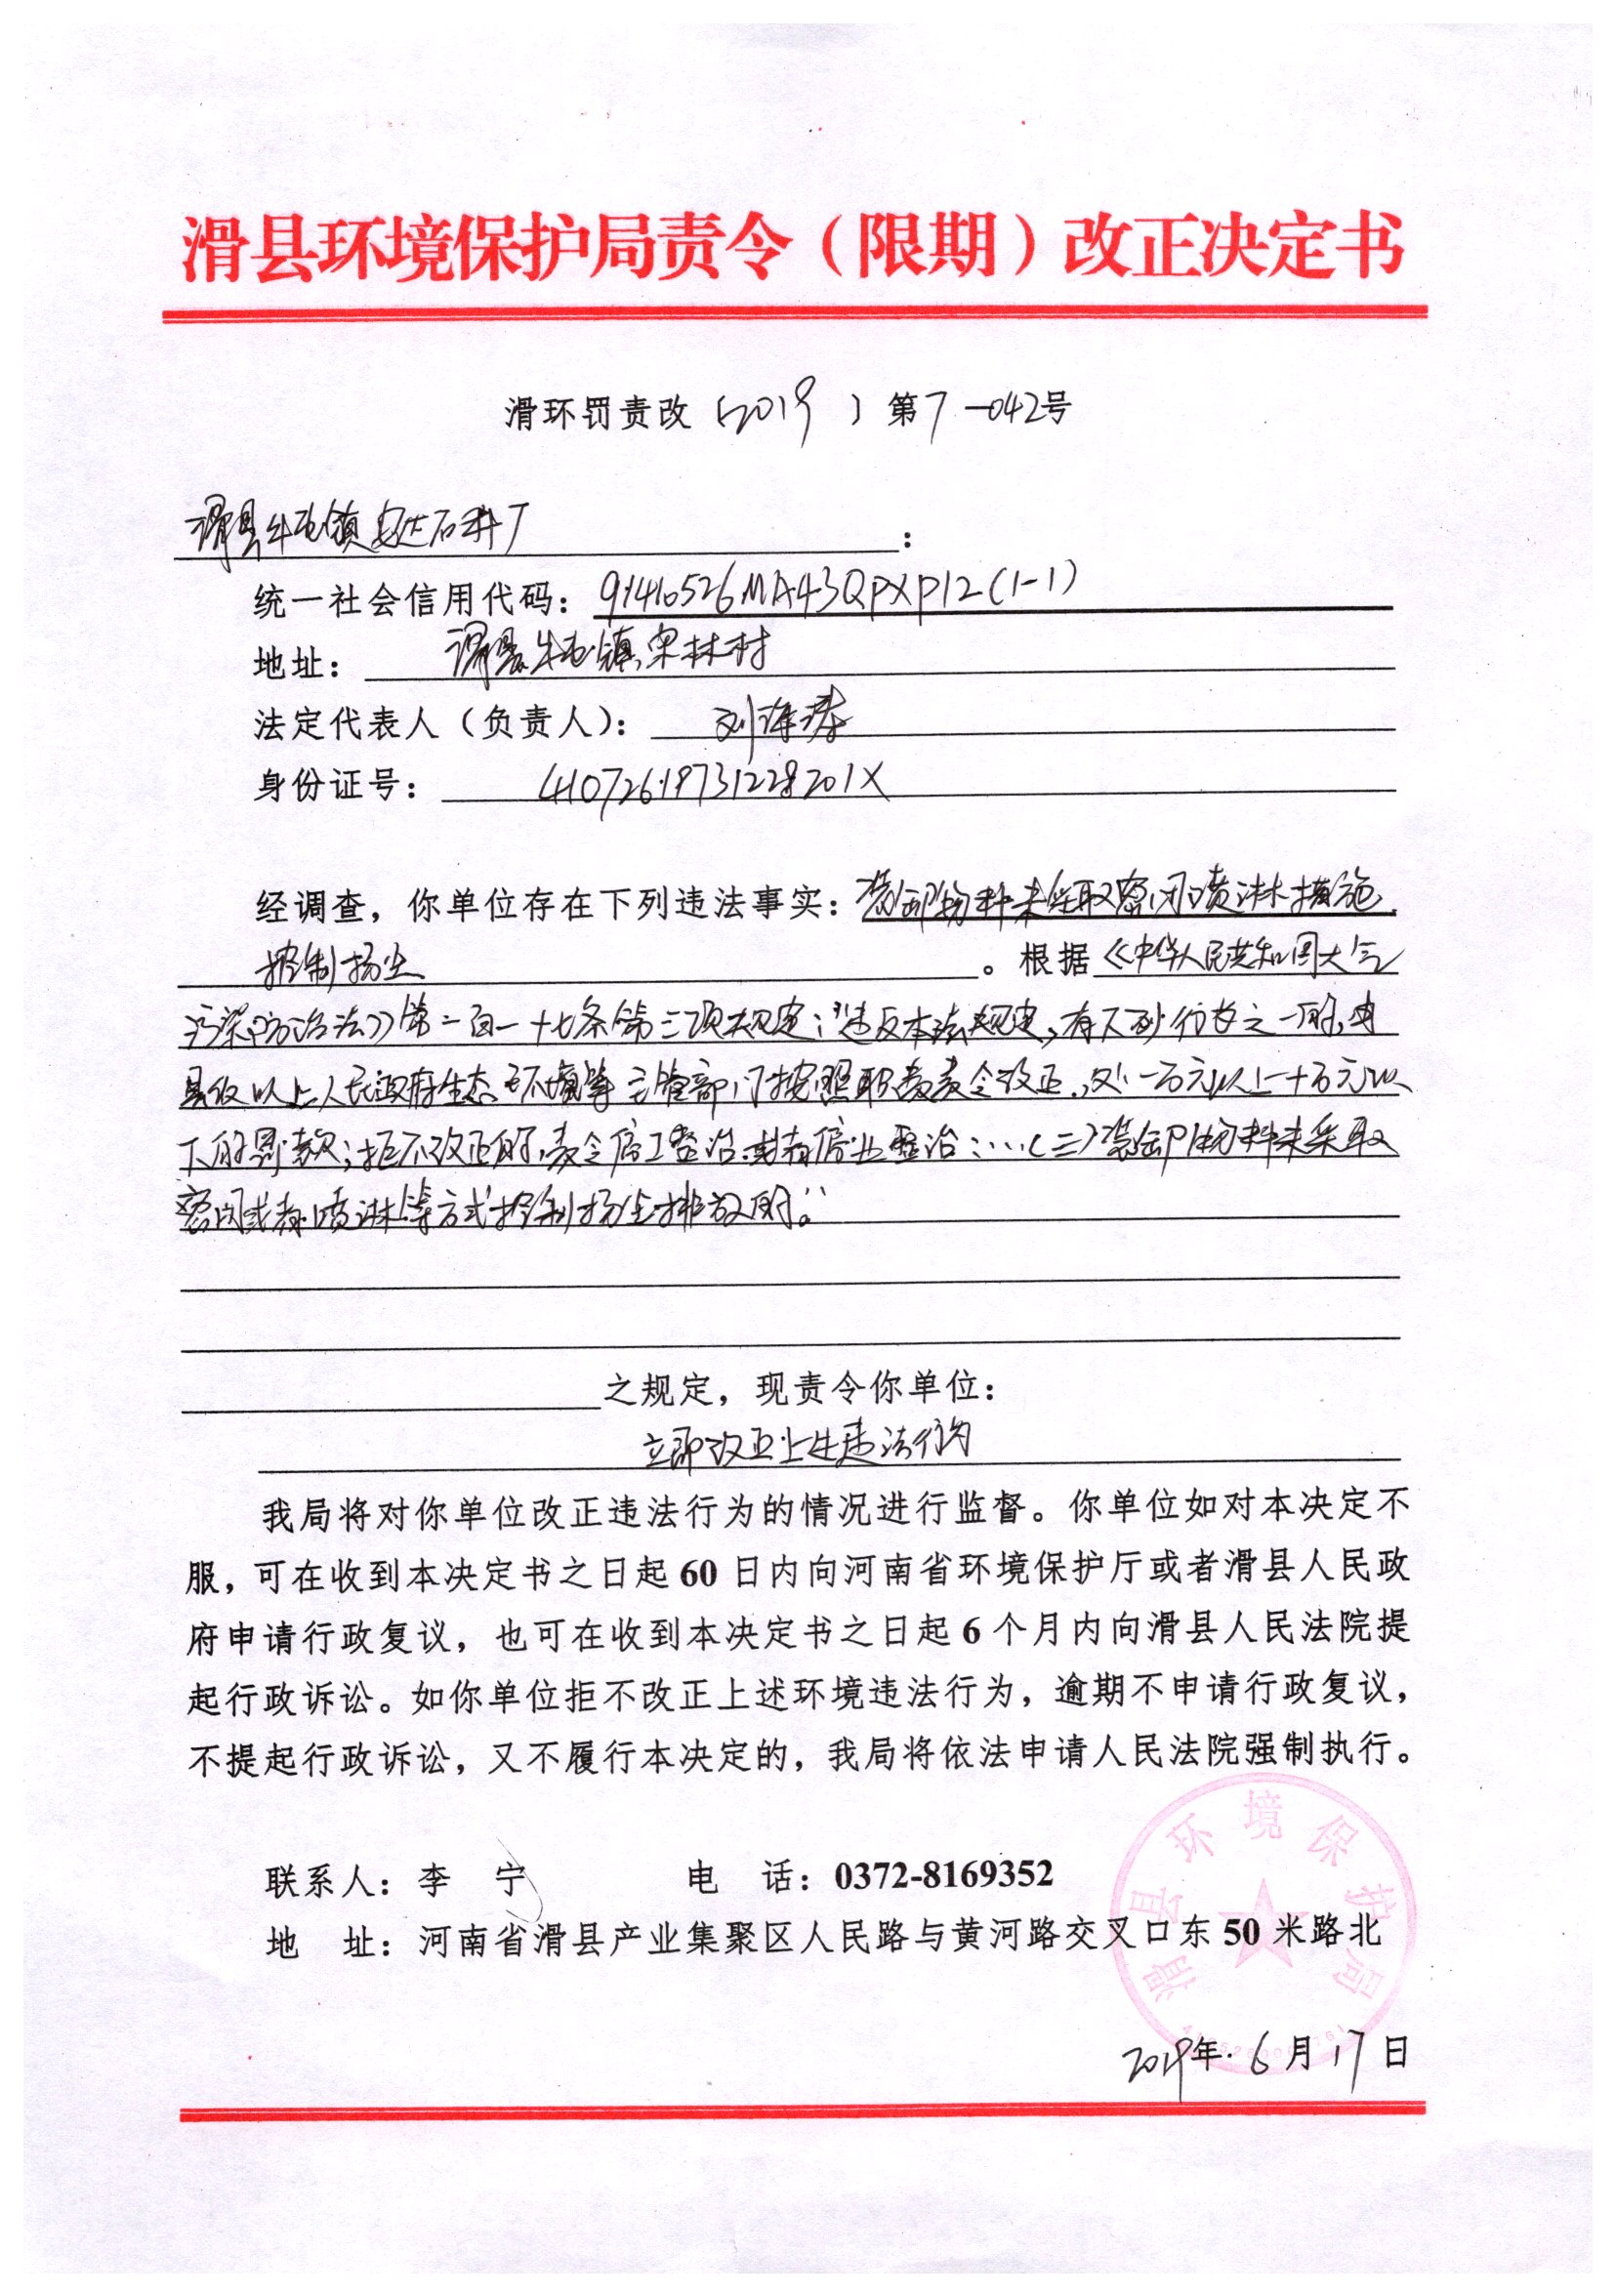 滑县环境保护局责令（限期）改正决定书
滑环罚责改〔2019〕第7-042号
滑县牛屯镇安达石料厂：
统一社会信用代码：91410526MA43QPXP12(1-1)
地址：滑县牛屯镇宋林村
法定代表人（负责人）：刘海涛
身份证号：41072619731228201X
经调查，你单位存在下列违法事实：装卸物料未采取密闭喷淋措施
控制扬尘。根据《中华人民共和国大气
污染防治法》第一百一十七条第三项规定：“违反本法规定，有下列行为之一的，由
县级以上人民政府生态环境等主管部门按照职责责令改正，处一万元以上十万元以
下的罚款；拒不改正的，责令停工整治或者停业整治：…（三）装卸物料未采取
密闭或者喷淋等方式控制扬尘排放的。”
之规定，现责令你单位：
立即改正上述违法行为
我局将对你单位改正违法行为的情况进行监督。你单位如对本决定不
服，可在收到本决定书之日起60日内向河南省环境保护厅或者滑县人民政
府申请行政复议，也可在收到本决定书之日起6个月内向滑县人民法院提
起行政诉讼。如你单位拒不改正上述环境违法行为，逾期不申请行政复议，
不提起行政诉讼，又不履行本决定的，我局将依法申请人民法院强制执行。
联系人：李 宁 电 话：0372-8169352
地 址：河南省滑县产业集聚区人民路与黄河路交叉口东50米路北
滑县环境保护局
2019年6月17日